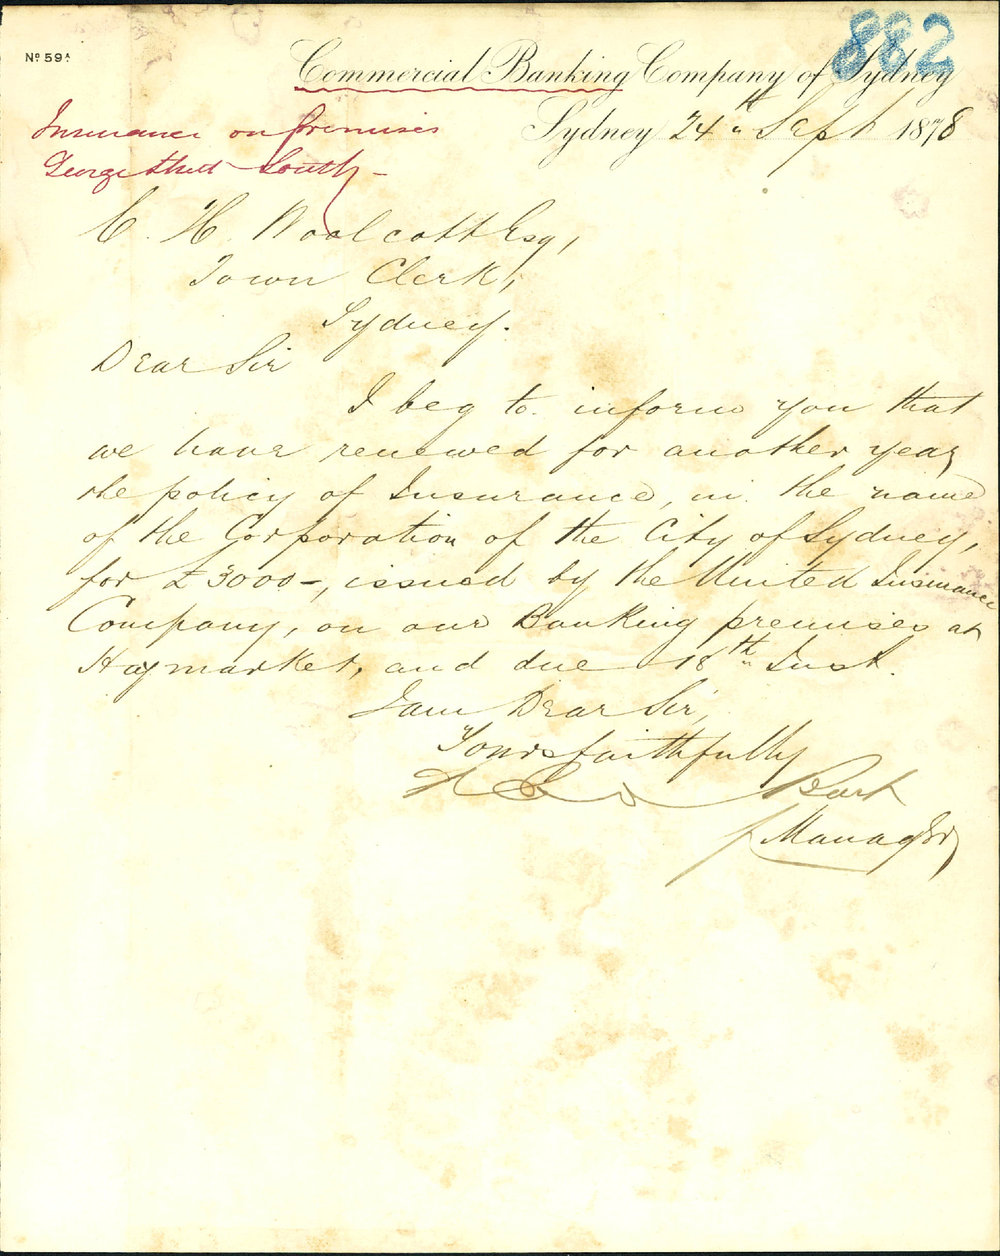 882
No 59A
Commercial Banking Company of Sydney
Sydney 24th Sept 1878
Insurance on premises
George Street South -
C. H. Woolcott Esq,
Town Clerk,
Sydney.
Dear Sir
I beg to inform you that
we have renewed for another year
the policy of Insurance, in the name
of the Corporation of the City of Sydney,
for £3000-, issued by the United Insurance
Company, on our Banking premises at
Haymarket, and due 18th Inst.
I am Dear Sir,
Yours faithfully
Manager